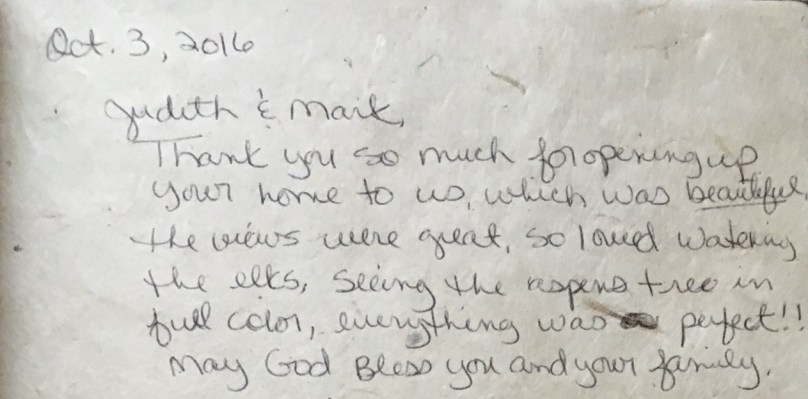 Oct. 3, 2016
Judith & Mark,
Thank you so much for opening up
your home to us, which was beautiful.
the views were great, so loved watching
the elks, seeing the aspens tree in
full color, everything was perfect!!
May God Bless you and your family.